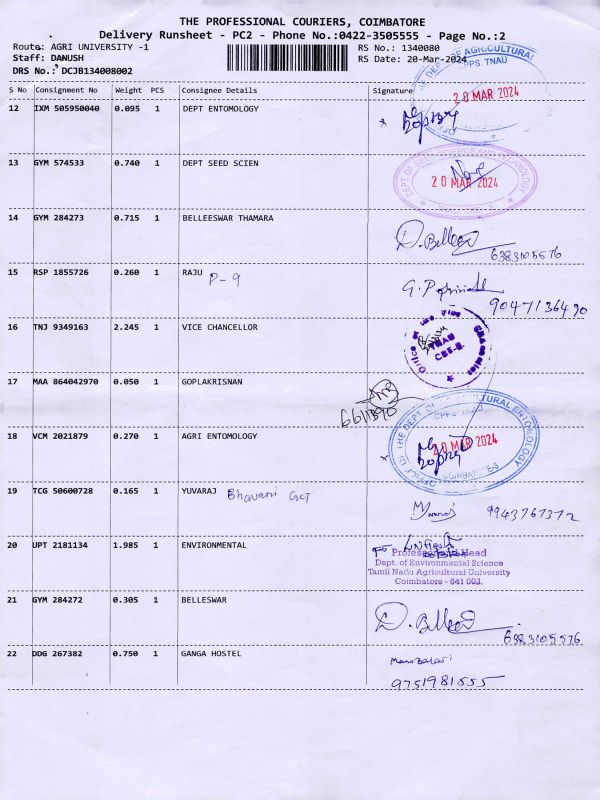 THE PROFESSIONAL COURIERS, COIMBATORE
Delivery Runsheet - PC2 - Phone No.:0422-3505555 - Page No.:2
Route: AGRI UNIVERSITY -1
RS No.: 1340080
Staff: DANUSH
RS Date: 20-Mar-2024
DRS No.: DCJB134008002
S No Consignment No Weight PCS Consignee Details Signature
12 IXM 505950040 0.095 1 DEPT ENTOMOLOGY
THE DEPT OF AGRICULTURAL
CPPS TNAU
20 MAR 2024
13 GYM 574533 0.740 1 DEPT SEED SCIEN
DEPT OF SEED SCIENCE AND TECHNOLOGY
20 MAR 2024
14 GYM 284273 0.715 1 BELLEESWAR THAMARA
D. Bellee
6383105576
15 RSP 1855726 0.260 1 RAJU P-9
9047136490
16 TNJ 9349163 2.245 1 VICE CHANCELLOR
Office of the Vice Chancellor
TNAU
CBE-3.
17 MAA 864042970 0.050 1 GOPLAKRISNAN
18 VCM 2021879 0.270 1 AGRI ENTOMOLOGY
OFFICE OF THE DEPT OF AGRICULTURAL ENTOMOLOGY
CPPS TNAU
20 MAR 2024
COIMBATORE-3
19 TCG 50600728 0.165 1 YUVARAJ Bhavani GCT
9943767372
20 UPT 2181134 1.985 1 ENVIRONMENTAL
Professor and Head
Dept. of Environmental Science
Tamil Nadu Agricultural University
Coimbatore - 641 003.
21 GYM 284272 0.305 1 BELLESWAR
D. Bellee
6383105576
22 DDG 267382 0.750 1 GANGA HOSTEL
9751981555